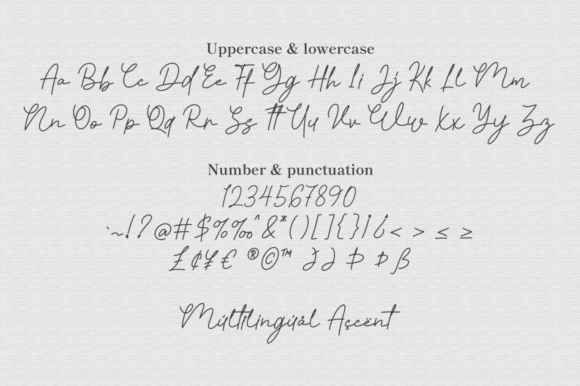 Uppercase & lowercase
Aa Bb Cc Dd Ee Ff Gg Hh Ii Jj Kk Ll Mm
Nn Oo Pp Qq Rr Ss Tt Uu Vv Ww Xx Yy Zz
Number & punctuation
1234567890
`~!?@#$%‰^&*()[]{}¡¿<>≤≥
£¢¥€®©™ Þ Þ ß
Múltílíngüál Ascënt